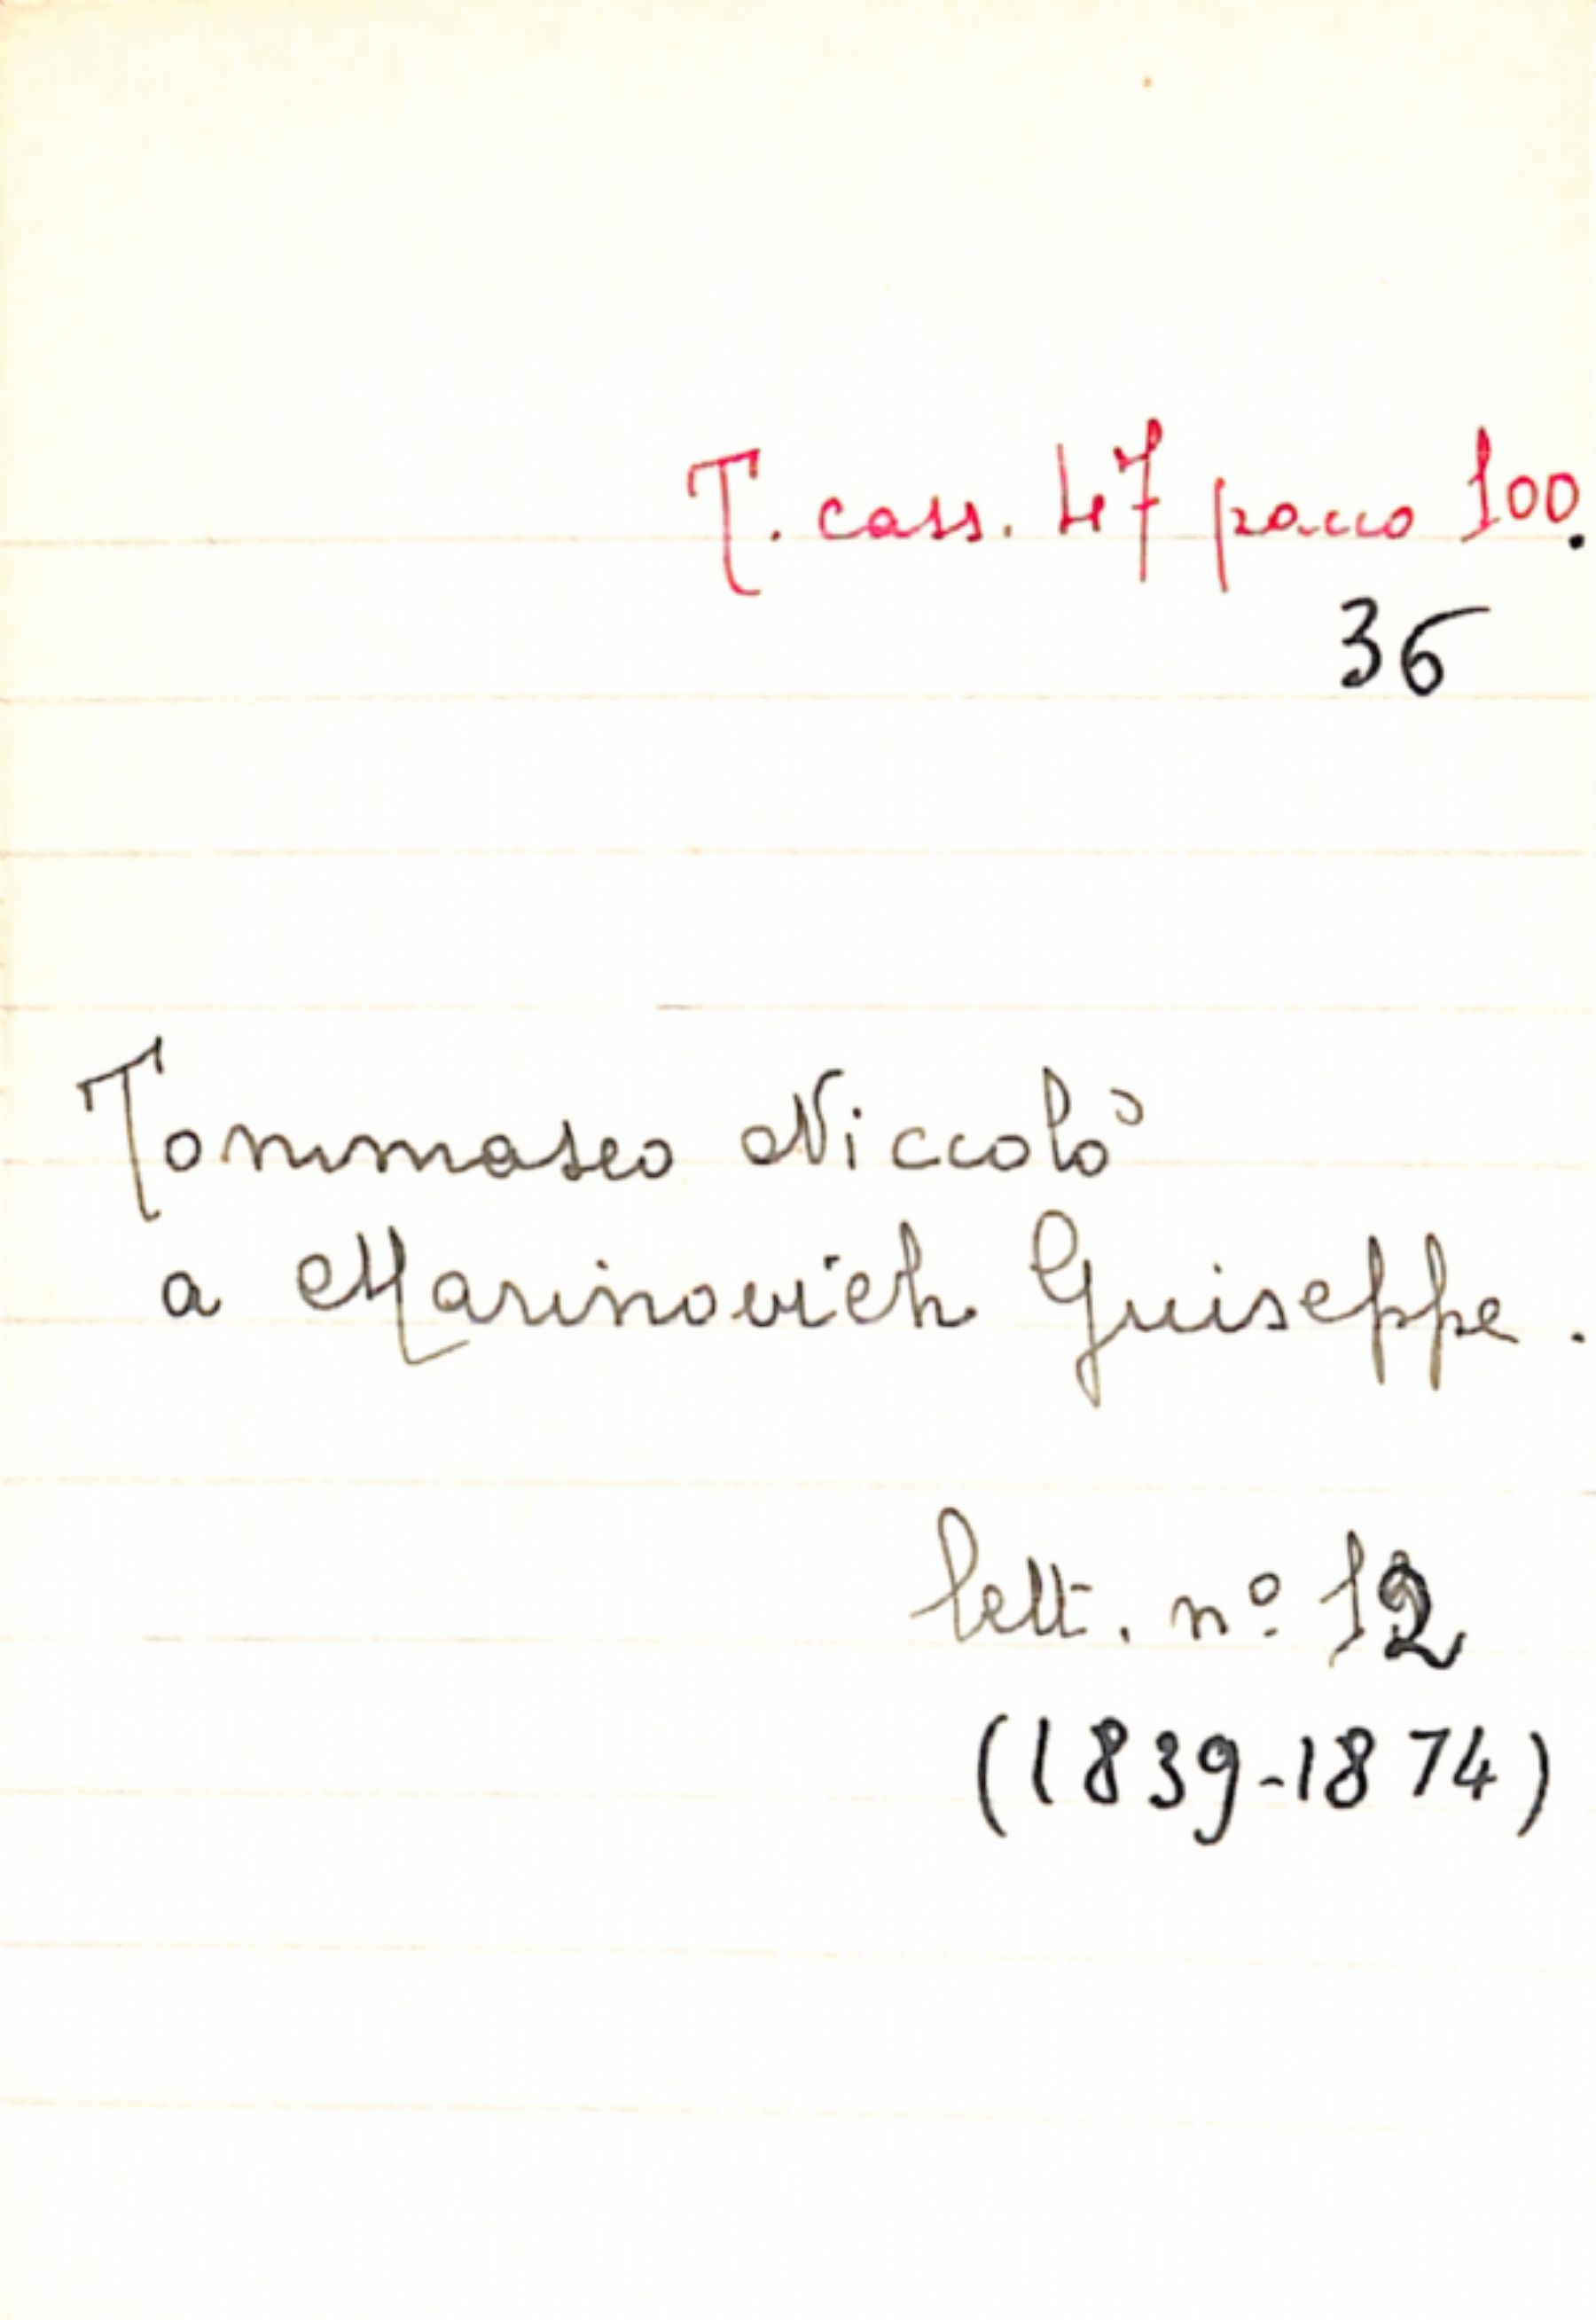 T. cass. 47 pacco 100.
36
Tommaseo Niccolò
a Marinovich Giuseppe.
lett. nº 12
(1839-1874)